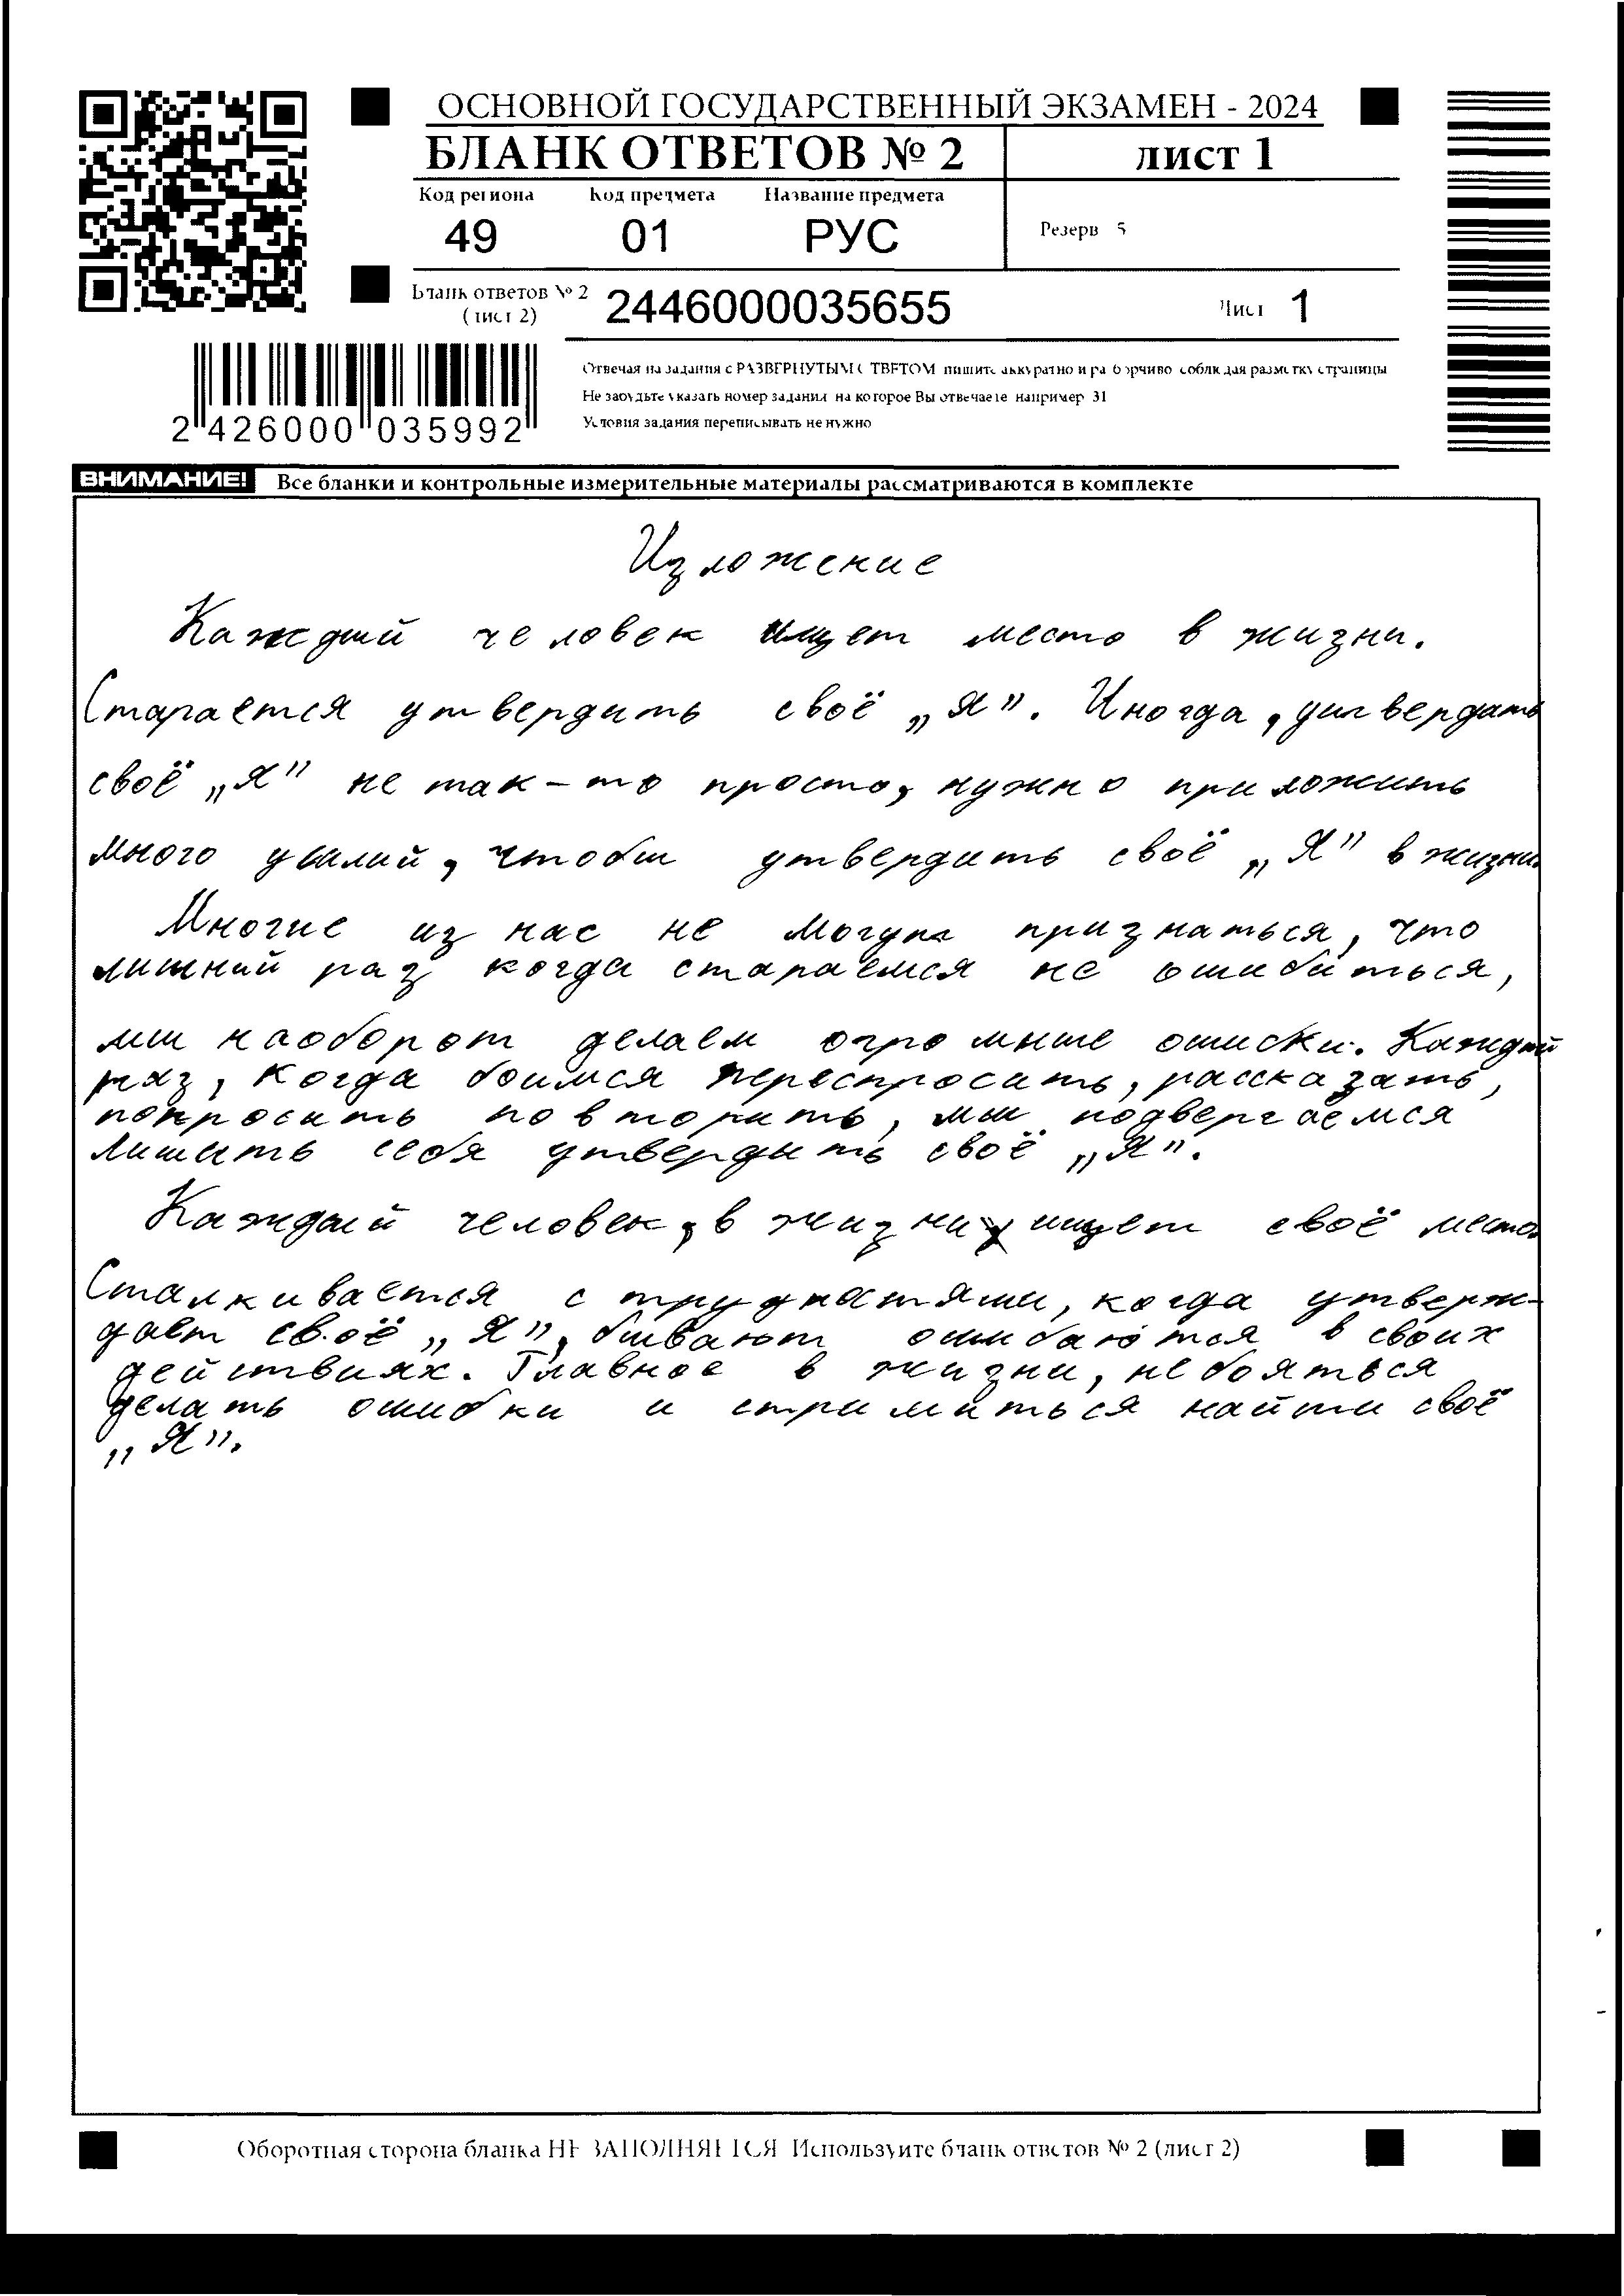 ОСНОВНОЙ ГОСУДАРСТВЕННЫЙ ЭКЗАМЕН - 2024
БЛАНК ОТВЕТОВ № 2
ЛИСТ 1
Код региона Код предмета Название предмета
49 01 РУС
Резерв 5
Бланк ответов № 2
(лист 2)
2446000035655
Лист 1
2 426000 035992
Отвечая на задания с РАЗВЕРНУТЫМ ОТВЕТОМ пишите аккуратно и разборчиво соблюдая разметку страницы
Не забудьте указать номер задания на которое Вы отвечаете например 31
Условия задания переписывать не нужно
ВНИМАНИЕ! Все бланки и контрольные измерительные материалы рассматриваются в комплекте
Изложение
Каждый человек ищет место в жизни.
Старается утвердить своё „Я". Иногда, утвердить
своё „Я" не так-то просто, нужно приложить
много усилий, чтобы утвердить своё „Я" в жизни.
Многие из нас не могут признаться, что
лишний раз когда стараемся не ошибиться,
мы наоборот делаем огромные ошиски. Каждый
раз, когда боимся переспросить, рассказать,
попросить повторить, мы подвергаемся
лишить себя утвердить своё „Я".
Каждый человек, в жизни ищет своё место.
Сталкивается с труднастями, когда утверж-
дает своё „Я", бывают ошибаются в своих
действиях. Главное в жизни, не бояться
делать ошибки и стримиться найти своё
„Я".
Оборотная сторона бланка НЕ ЗАПОЛНЯЕТСЯ Используйте бланк ответов № 2 (лист 2)